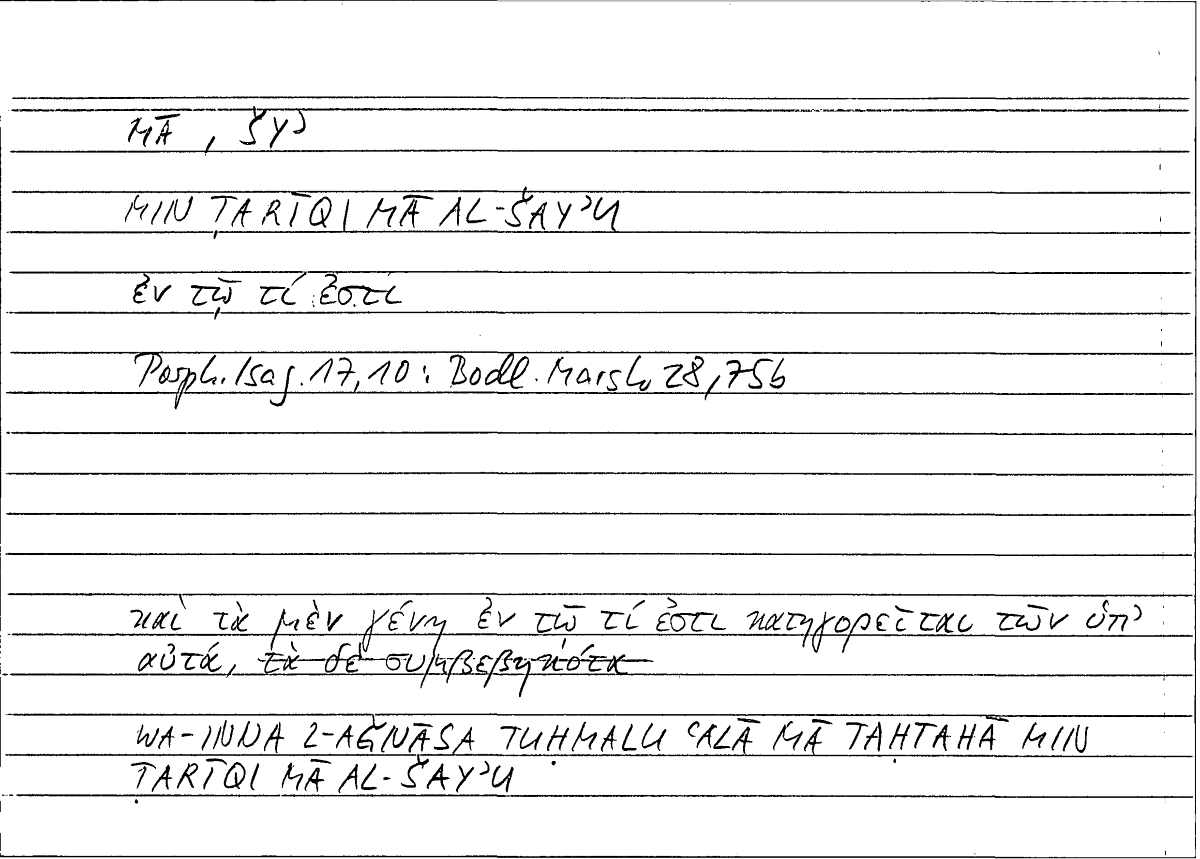 MĀ , ŠYʾ
MIN ṬARĪQI MĀ AL-ŠAYʾU
ἐν τῷ τί ἐστι
Porph. Isag. 17,10: Bodl. Marsh 28,75b
καὶ τὰ μὲν γένη ἐν τῷ τί ἐστι κατηγορεῖται τῶν ὑπ’
αὐτά, ~~τὰ δὲ συμβεβηκότα~~
WA-INNA L-AǦNĀSA TUḤMALU ʿALĀ MĀ TAḤTAHĀ MIN
ṬARĪQI MĀ AL-ŠAYʾU